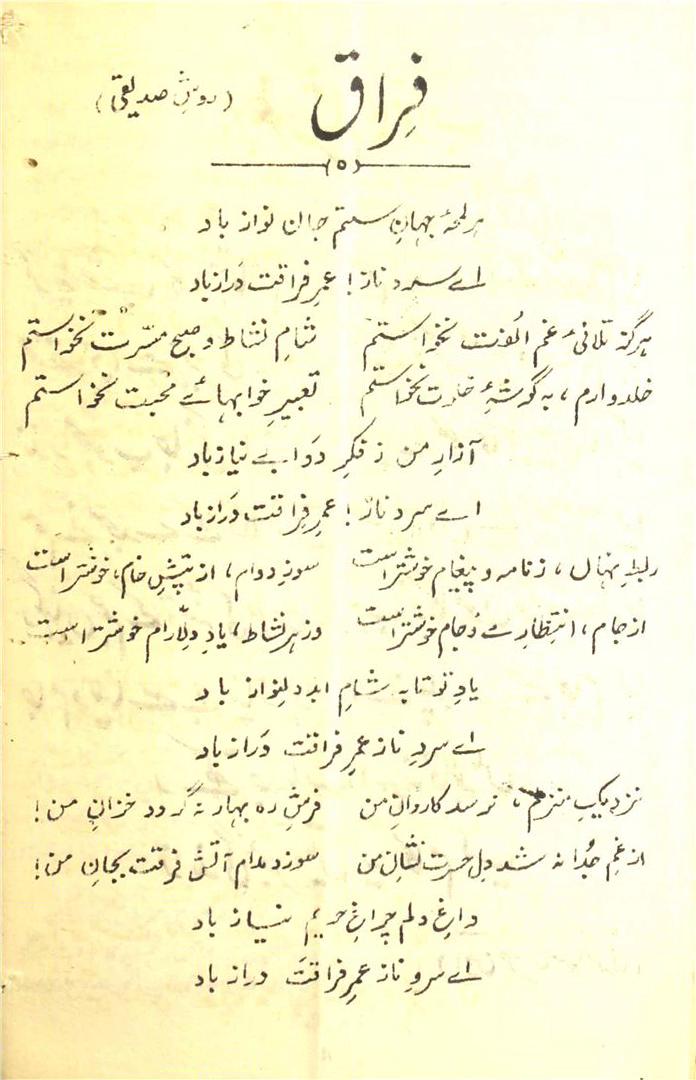 فِراق
(روشِ صدیقی)
(۵)
ہر لمحۂ جہانِ ستم جاں نواز باد
اے سروِ ناز! عمرِ فراقت دَراز باد
ہرگز تلافیٔ غمِ اُلفت نخواستم شامِ نشاط و صبحِ مسرّت نخواستم
خلد و ارم، بہ گوشۂ خلوت نخواستم تعبیرِ خوابہائے محبت نخواستم
آزارِ من ز فکرِ دَوا بے نیاز باد
اے سرو ناز! عمرِ فراقت دَراز باد
ربطِ نہاں، ز نامہ و پیغام خوشتر است سوزِ دوام، از تپشِ خام، خوشتر است
از جام، انتظارِ مے و جام خوشتر است وز ہر نشاط، یادِ دلآرام خوشتر است
یادِ تو تا بہ شامِ ابد دلنواز باد
اے سروِ ناز عمرِ فراقت دَراز باد
نزدیکِ منزلم، نرسد کاروانِ من فرشِ رہِ بہار نہ گردد خزانِ من!
از غم جُدا نہ شد دلِ حسرت نشانِ من سوزد مدام آتشِ فرقت بجانِ من!
داغِ دلم چراغِ حریمِ نیاز باد
اے سروِ ناز عمرِ فراقت دراز باد